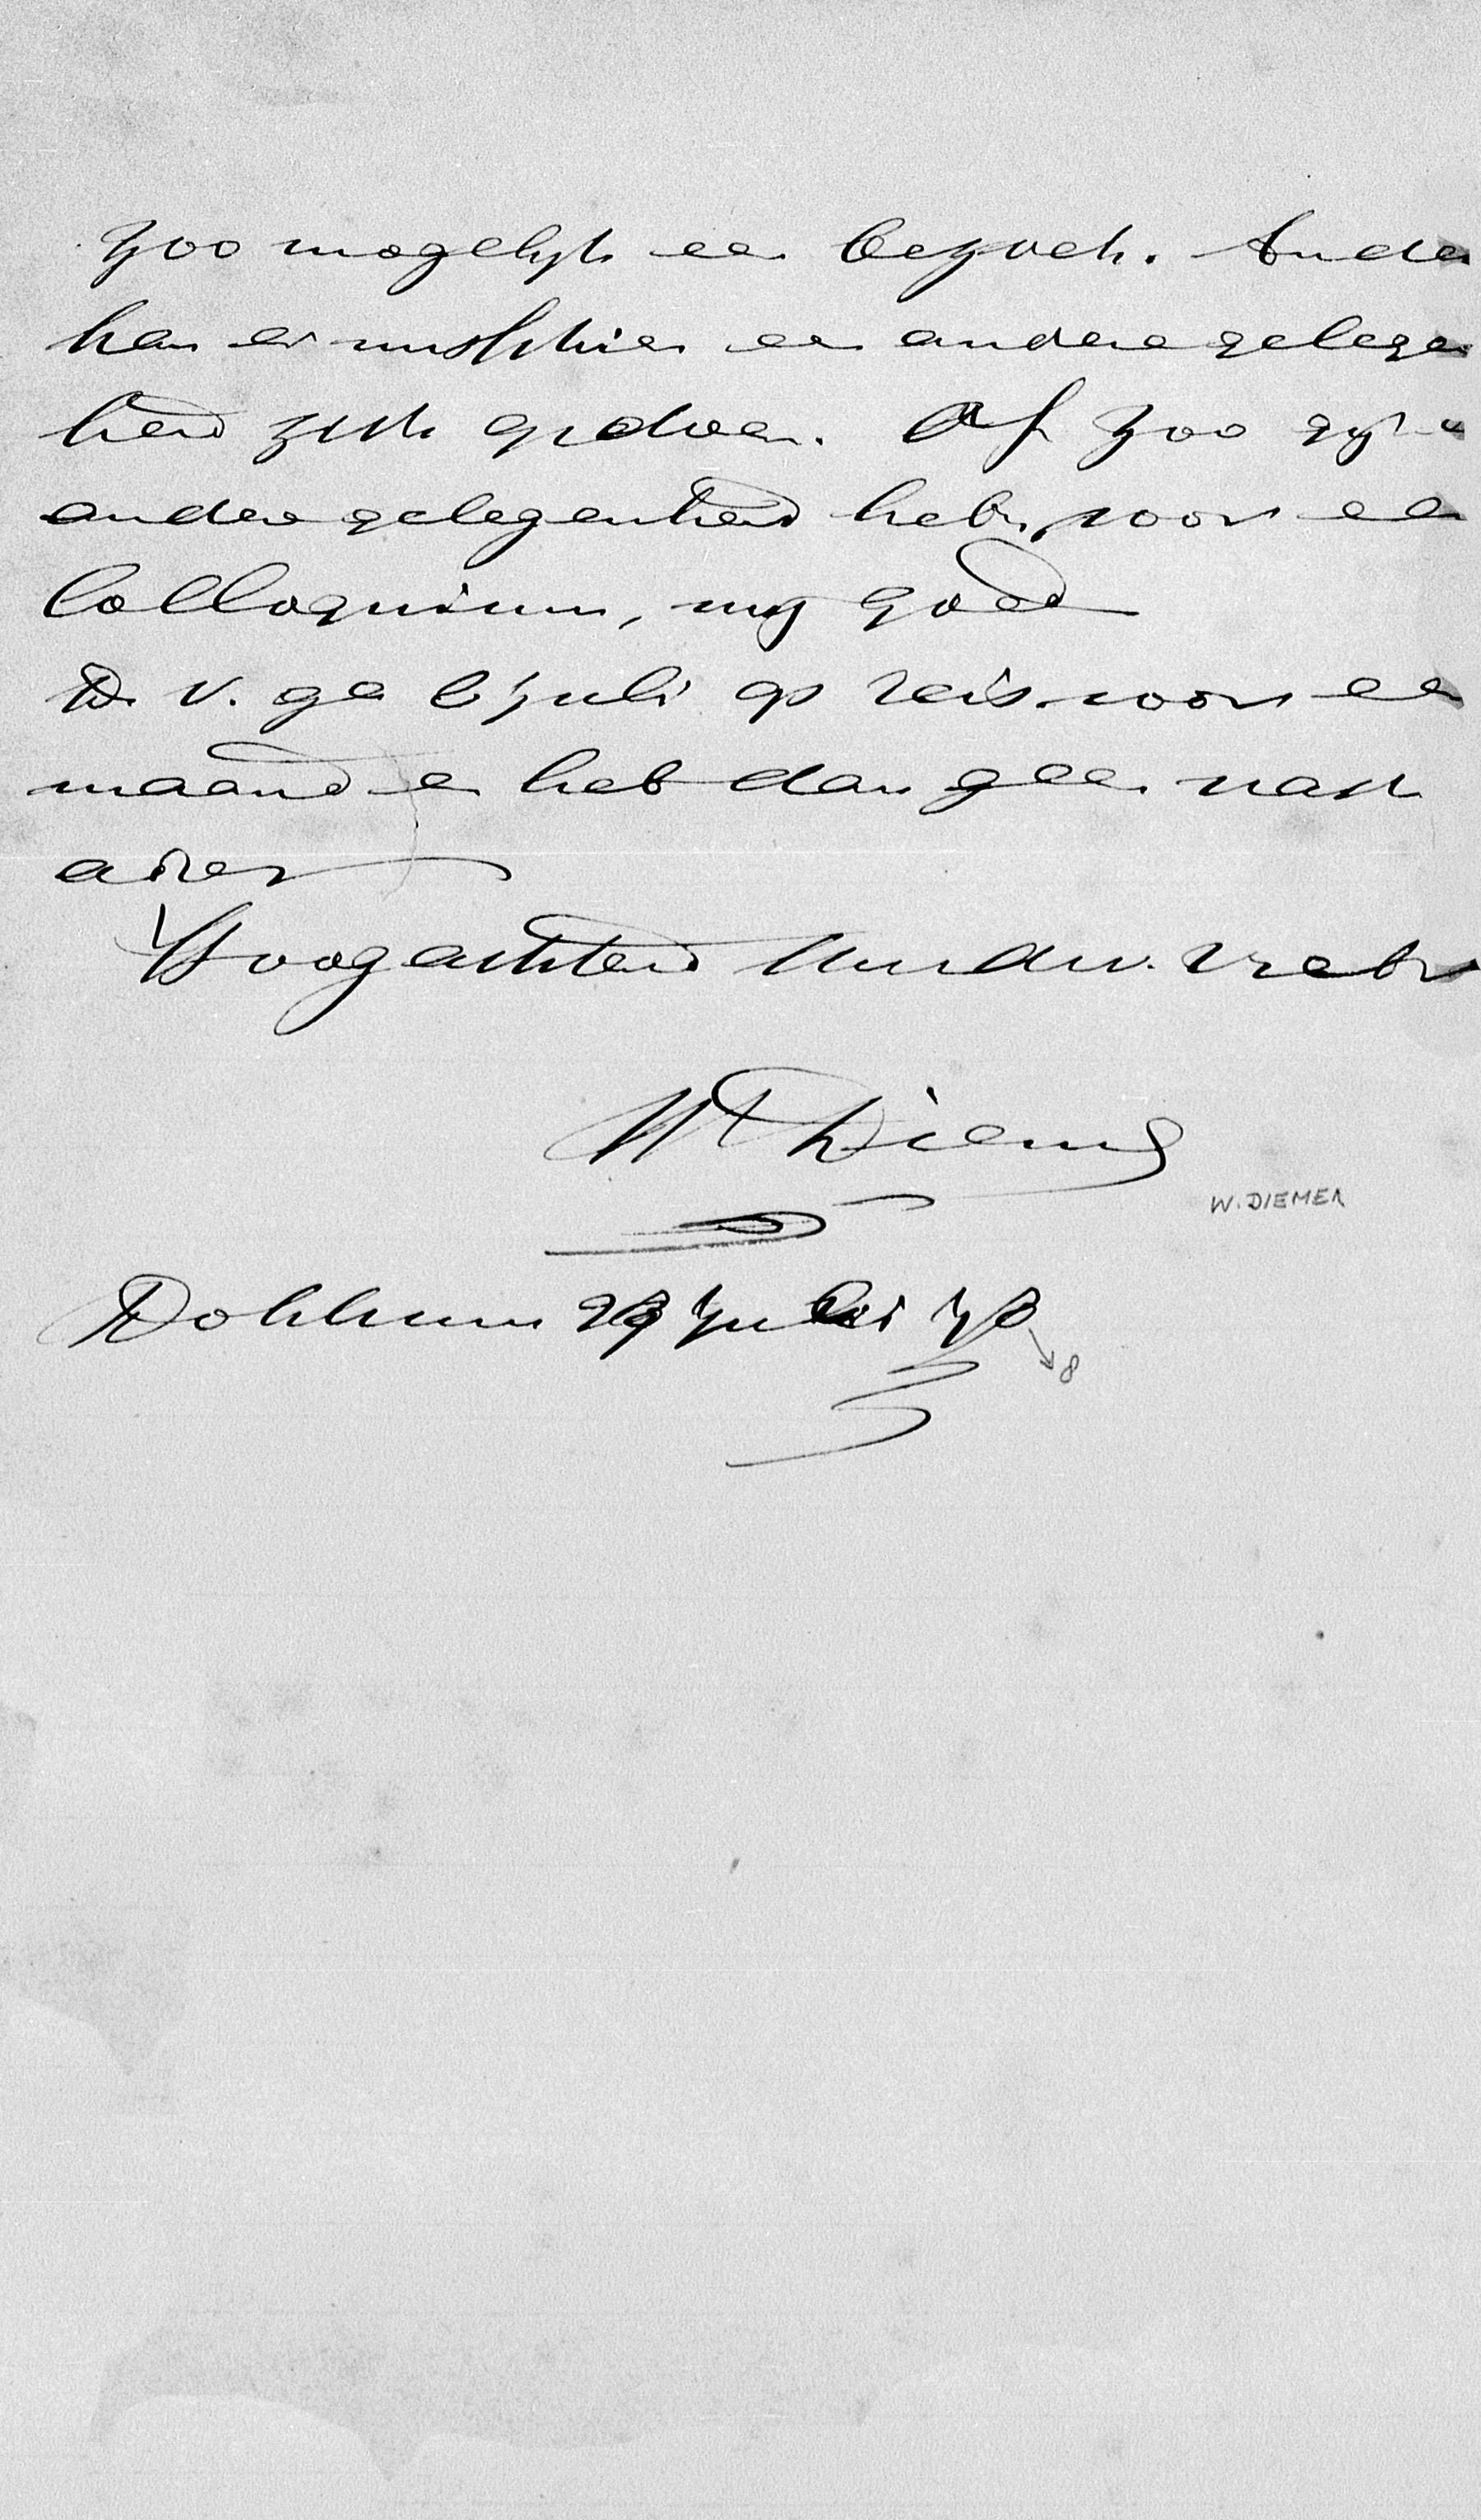 Zoo mogelijk een bezoek. Ander
kan er misschien een andere gelegen
heid zich opdoen. Of zoo gij een
andere gelegenheid hebt voor een
Colloquium, mij goed
D. V. ga 6 juli op reis voor een
maand en heb dan geen vast
adres
Hoogachtend Uw dw. br
W Diemer
W. DIEMER
Dokkum 29 Juni 78
8